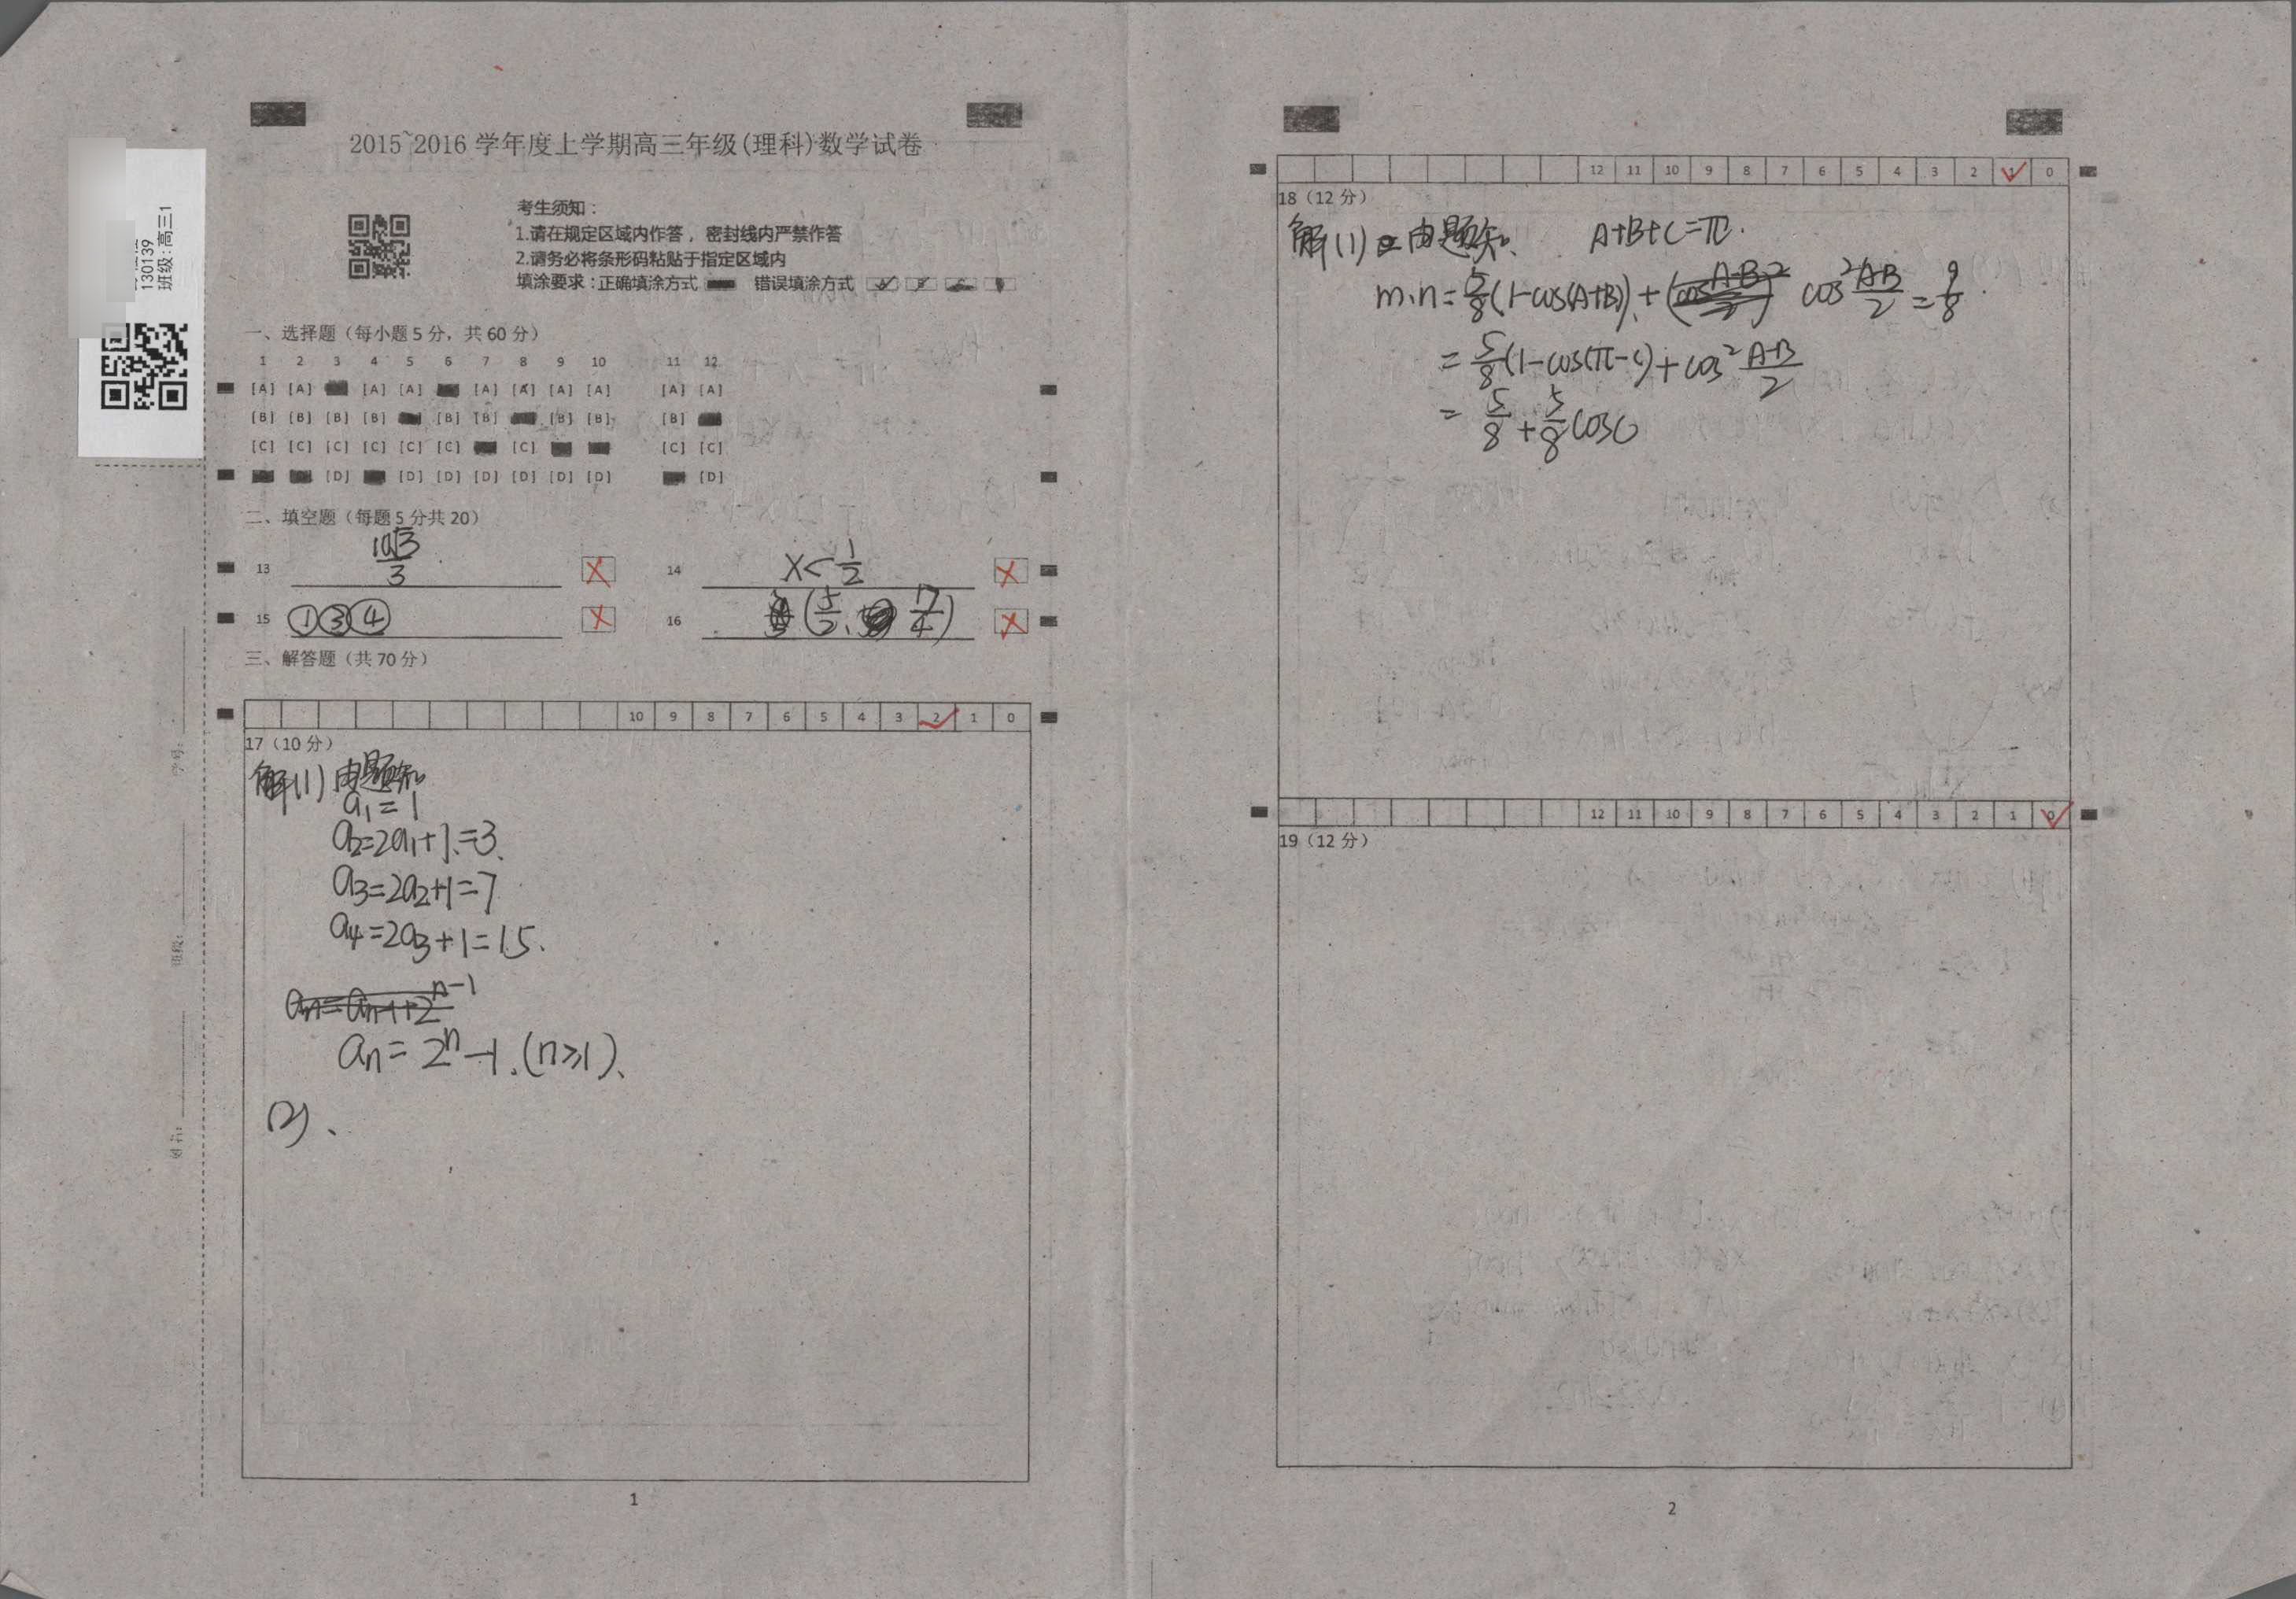 2015~2016 学年度上学期高三年级(理科)数学试卷
130139
班级:高三1
考生须知：
1.请在规定区域内作答，密封线内严禁作答
2.请务必将条形码粘贴于指定区域内
填涂要求：正确填涂方式 错误填涂方式
一、选择题（每小题 5 分，共 60 分）
1 2 3 4 5 6 7 8 9 10 11 12
[A] [A] [A] [A] [A] [A] [A] [A] [A] [A]
[B] [B] [B] [B] [B] [B] [B] [B] [B]
[C] [C] [C] [C] [C] [C] [C] [C] [C]
[D] [D] [D] [D] [D] [D] [D] [D]
二、填空题（每题 5 分共 20）
13 10√3/3
14 x<1/2
15 ①③④
16 (5/2、7/4)
三、解答题（共 70 分）
10 9 8 7 6 5 4 3 2 1 0
17（10 分）
解(1) 由题知
a₁=1
a₂=2a₁+1=3、
a₃=2a₂+1=7
a₄=2a₃+1=15、
aₙ=2ⁿ-1.(n≥1)、
(2)、
学号：
班级：
姓名：
1
12 11 10 9 8 7 6 5 4 3 2 1 0
18（12 分）
解(1) 由题知、 A+B+C=π.
m·n=5/8(1-cos(A+B))+cos²(A-B)/2=9/8.
=5/8(1-cos(π-c)+cos²(A-B)/2
=5/8+5/8cosC
12 11 10 9 8 7 6 5 4 3 2 1 0
19（12 分）
2